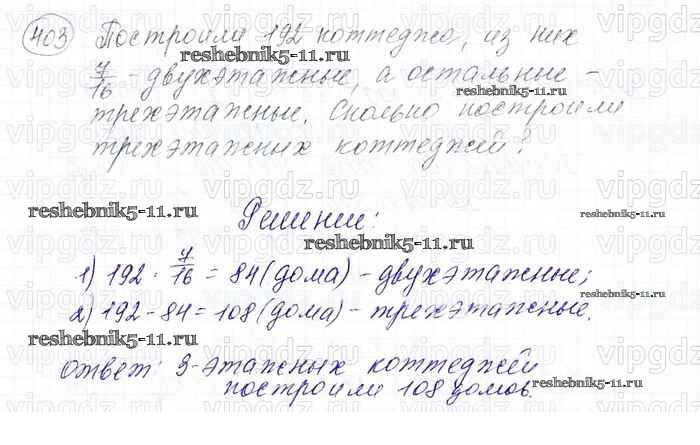 403 Построили 192 коттеджа, из них
reshebnik5-11.ru
7/16 - двухэтажные, а остальные -
reshebnik5-11.ru
трехэтажные. Сколько построили
трехэтажных коттеджей?
vipgdz.ru vipgdz.ru vipgdz.ru
reshebnik5-11.ru reshebnik5-11.ru
Решение:
reshebnik5-11.ru
1) 192 · 7/16 = 84 (дома) - двухэтажные;
2) 192 - 84 = 108 (дома) - трехэтажные.
reshebnik5-11.ru reshebnik5-11.ru
ответ: 3-этажных коттеджей
построили 108 домов.
reshebnik5-11.ru